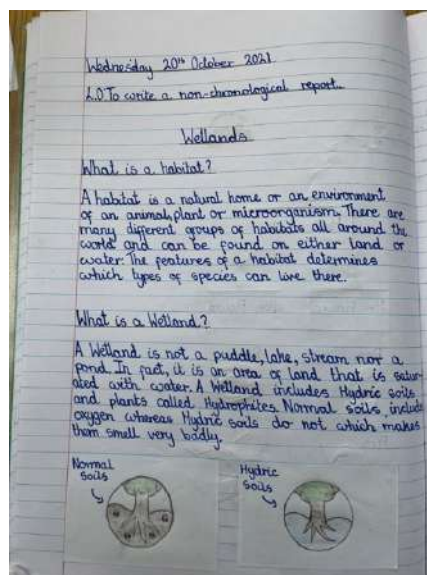 Wednesday 20th October 2021
L.O To write a non-chronological report.
Wetlands
What is a habitat?
A habitat is a natural home or an environment
of an animal, plant or microorganism. There are
many different groups of habitats all around the
world and can be found on either land or
water. The features of a habitat determines
which types of species can live there.
What is a Wetland?
A Wetland is not a puddle, lake, stream nor a
pond. In fact, it is an area of land that is satur-
ated with water. A Wetland includes Hydric soils
and plants called Hydrophites. Normal soils, include
oxygen whereas Hydric soils do not which makes
them smell very badly.
Normal
Soils
Hydric
Soils